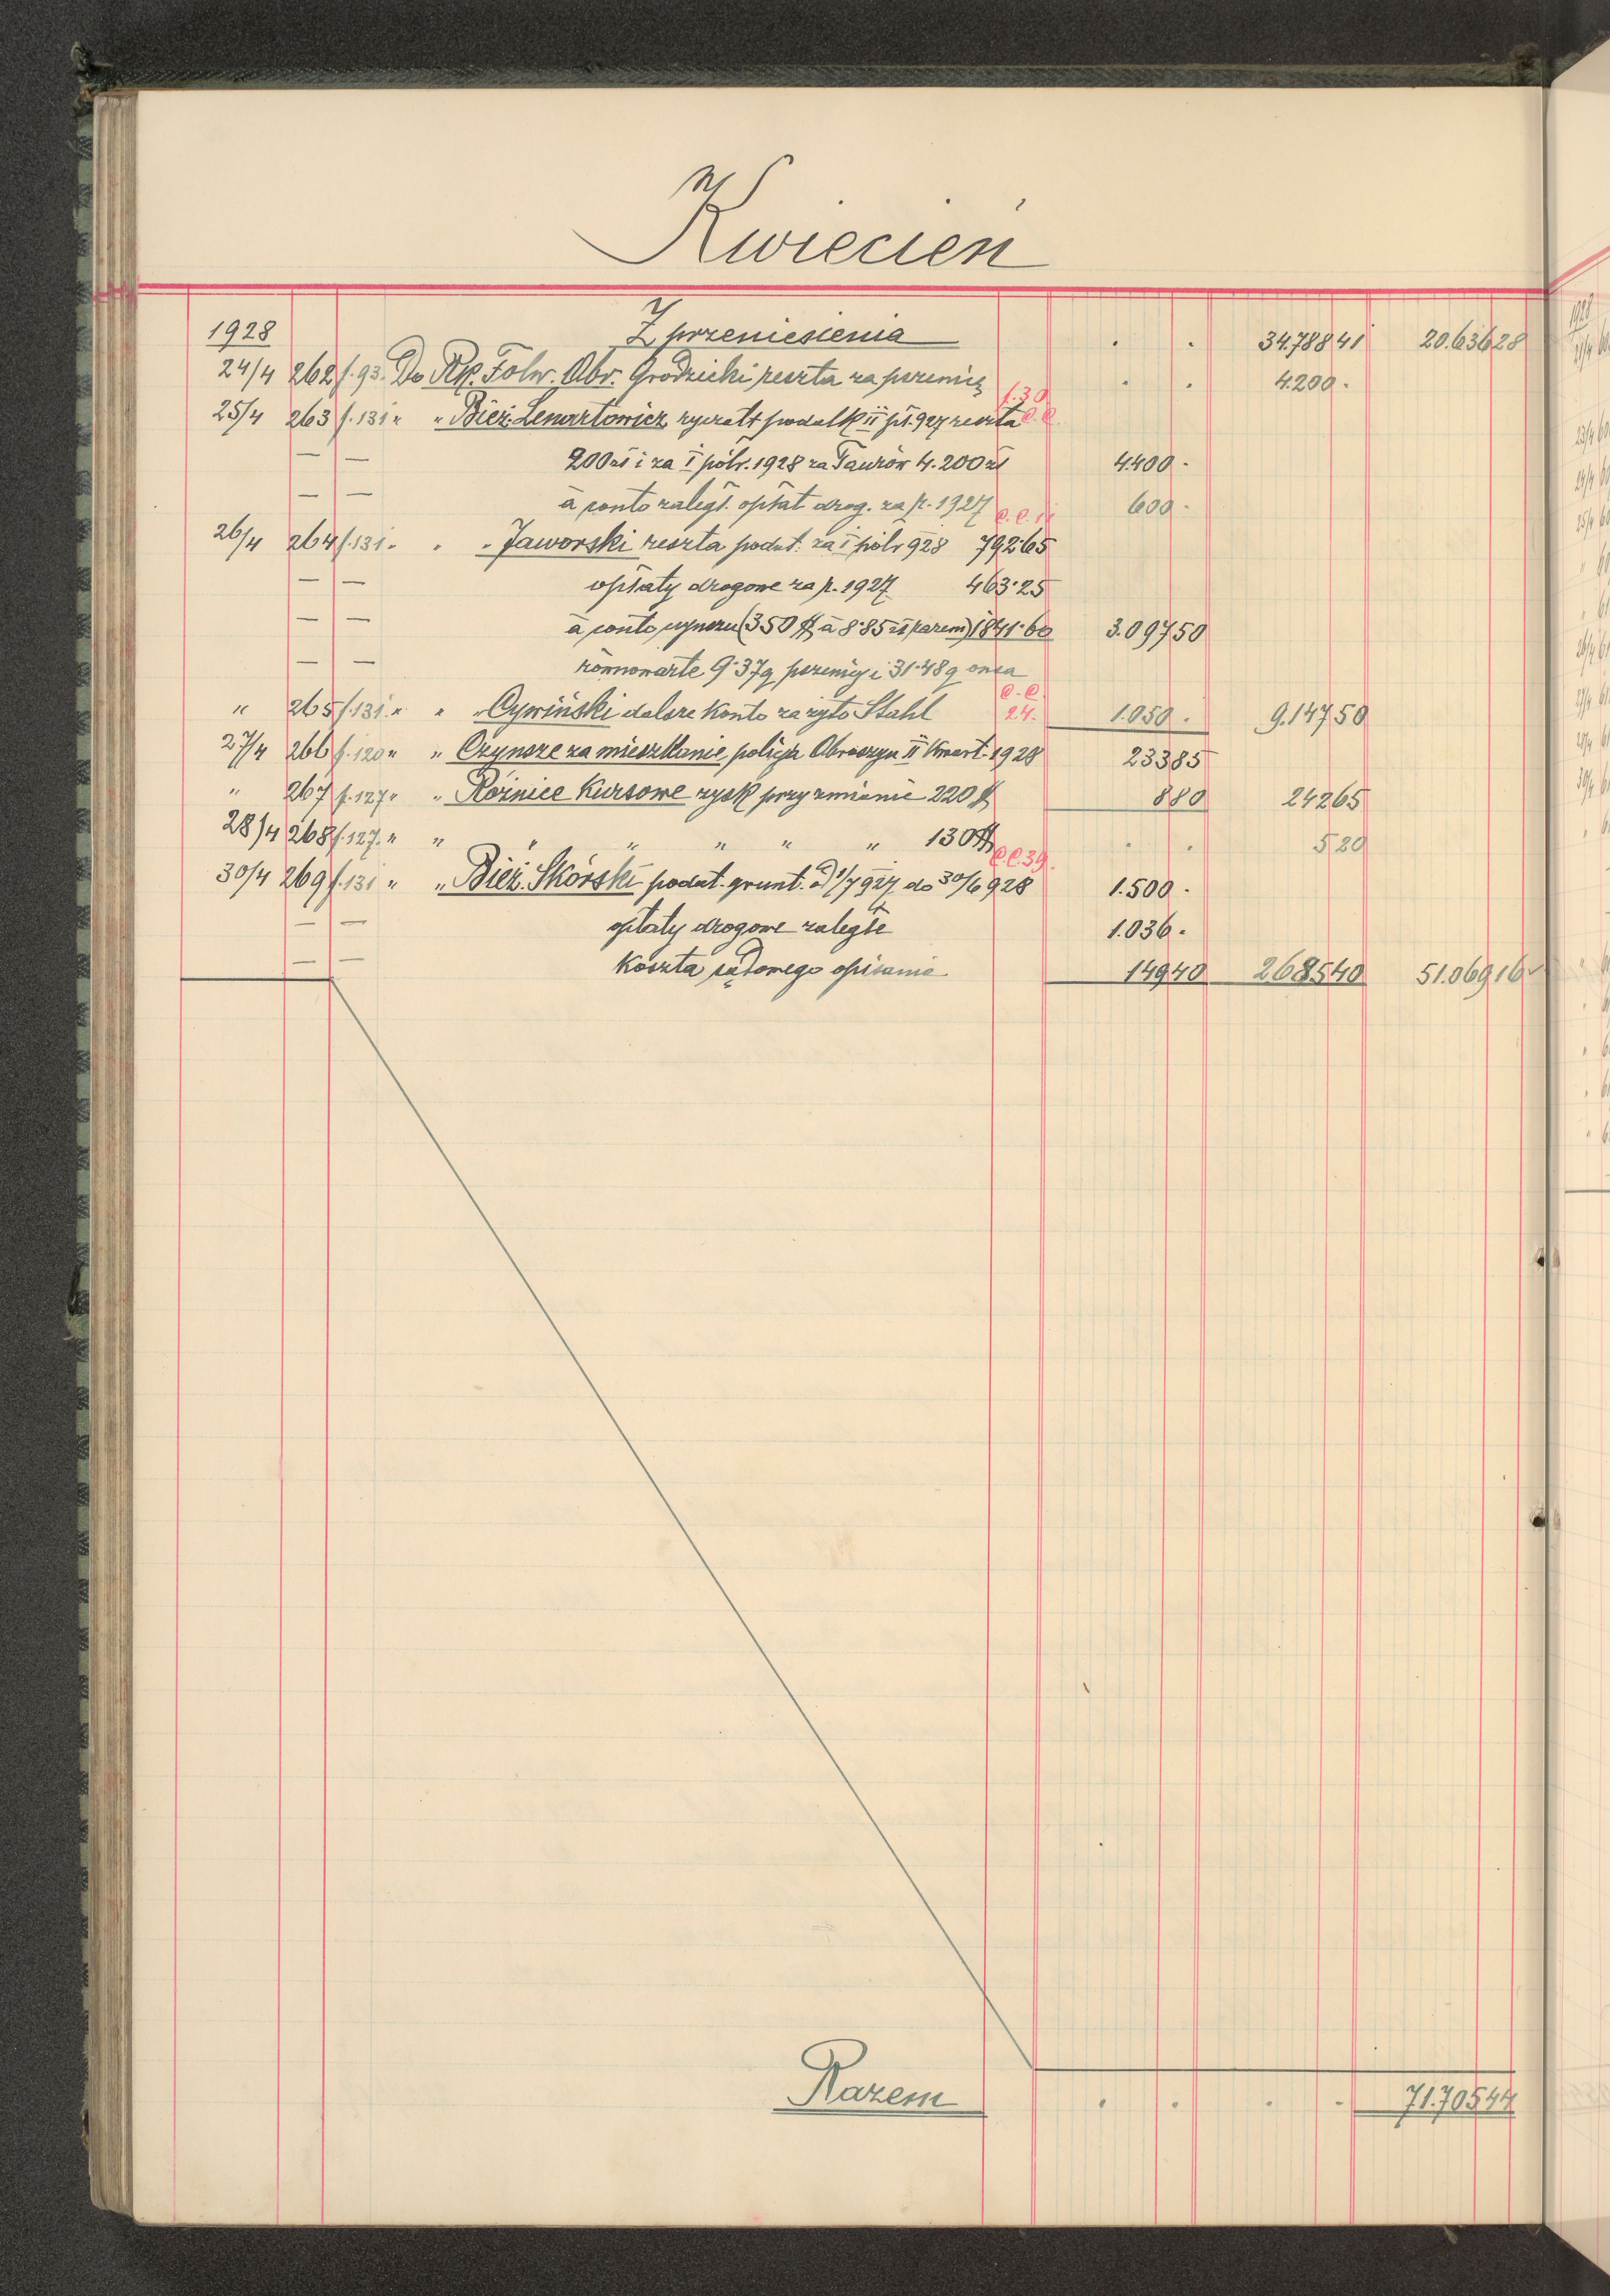 Kwiecień
1928 Z przeniesienia . . 34.788 41 20.636 28
24/4 262 f. 93. Do Rk. Folw. Obr. Grodzicki reszta za pszenicę f.30 . . 4.200 .
25/4 263 f. 131 " " Bież. Lenartowicz ryczałt podatk II pł. 927 reszta C.C.
— — 200 zł i za I półr. 1928 za Taurów 4.200 zł 4.400 .
— — à conto zaległ. opłat drog. za r. 1927 C.C. 600 .
26/4 264 f. 131 " " " Jaworski reszta podat. za I półr 928 792·65
— — opłaty drogowe za r. 1927 463·25
— — à conto czynszu (350 $ à 8·85 zł razem) 1841·60 3.097 50
— — równowarte 9·37 q pszenicy i 31·48 q owsa
" 265 f. 131 " " " Cywiński dalsze konto za żyto Stahl C.C. 24. 1.050 . 9.147 50
27/4 266 f. 120 " " Czynsze za mieszkanie policja Obroszyn II Kwart. 1928 233 85
" 267 f. 127 " " Różnice Kursowe zysk przy zmianie 220 $ 8 80 242 65
28/4 268 f. 127. " " " " " " " 130 $ . . 5 20
30/4 269 f. 131 " " Bież. Skórski podat. grunt. od 1/7 927 do 30/6 928 C.C. 39. 1.500 .
— — opłaty drogowe zaległe 1.036 .
— — Koszta sądowego opisania 149 40 2685 40 51.069 16
Razem . . . . 71.705 44